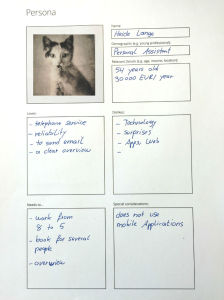 Persona
Name:
Heide Lange
Demographic (e.g. young professional):
Personal Assistant
Relevant Details (e.g. age, income, location):
54 years old
30 000 EUR / year
Loves:
- telephone service
- reliability
- to send email
- a clear overview
Dislikes:
- Technology
- Surprises
- Apps, Web
Needs to...
- work from
8 to 5
- book for several
people
- overview
Special considerations:
does not use
mobile Applications